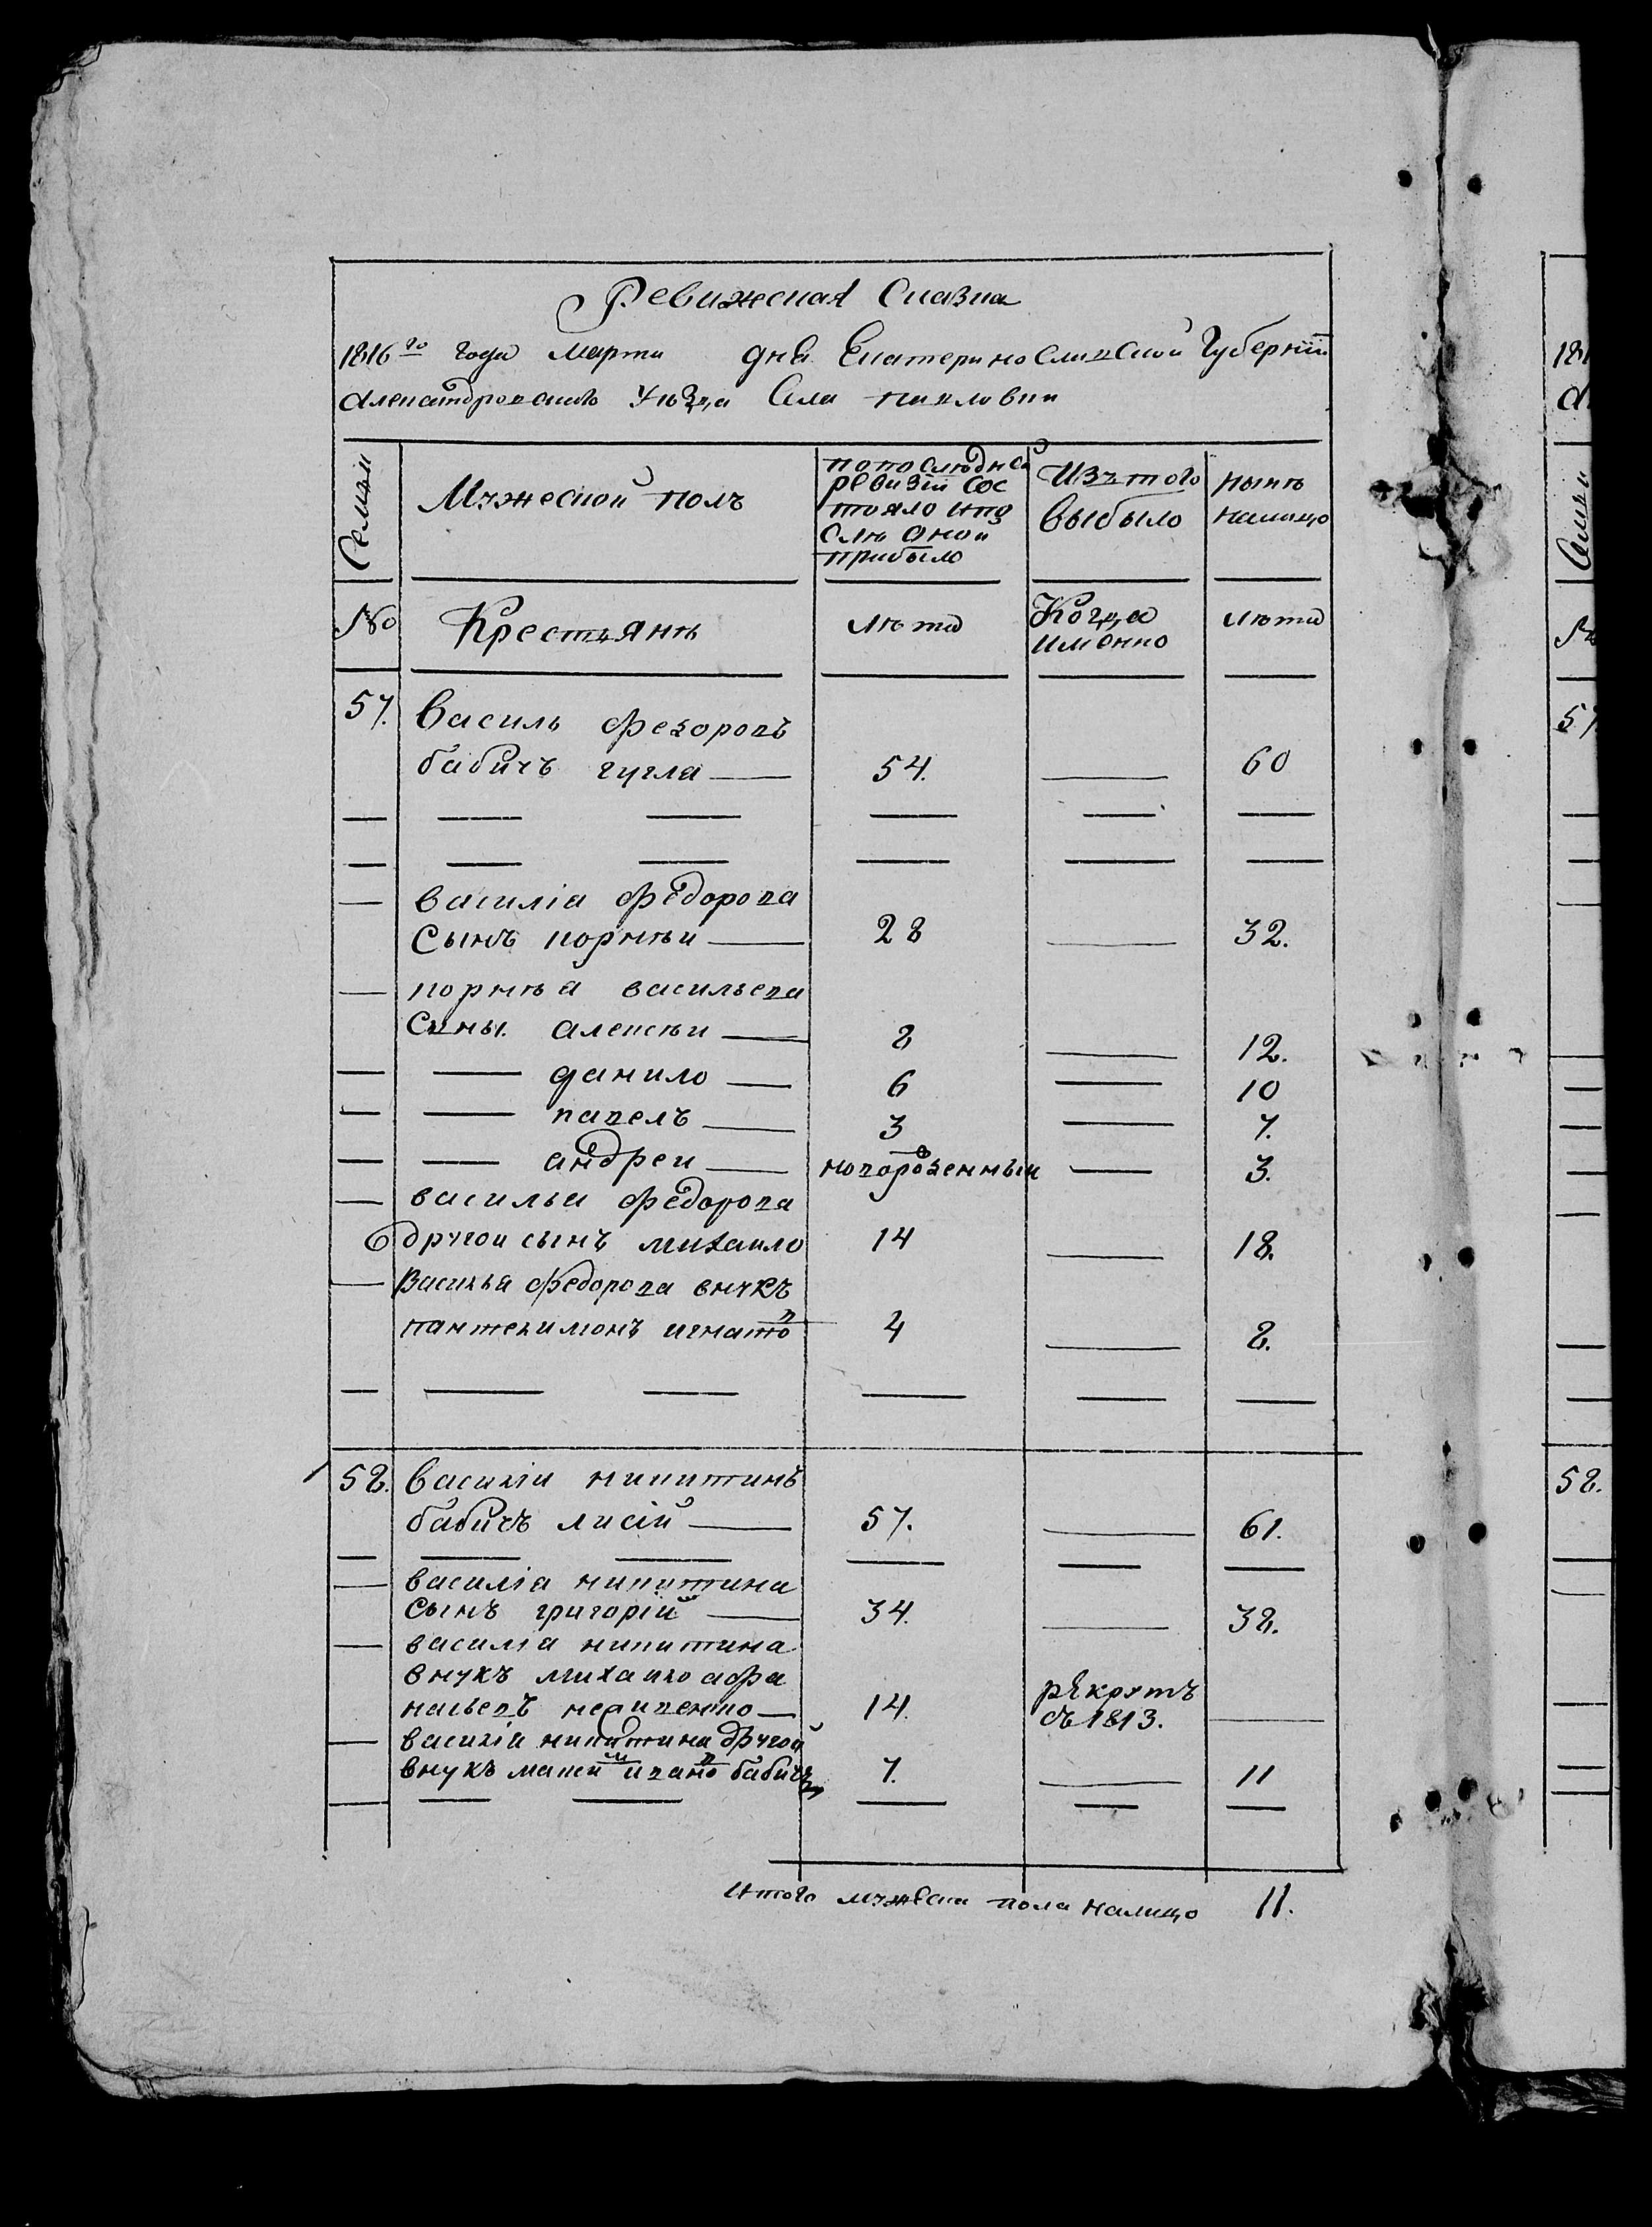 Ревижская Сказка
1816го года Марта дня Екатеринославской Губернiи
Александровскъ Уѣзда Села павловки
Семьи
Мужеской полъ
попослѣдней ревизiи сос тояло ипо слѣ оной прибыло
Изътого выбыло
нынѣ налицо
№ Крестьянѣ лѣта Когда именно лѣта
57. Василь федоровъ
бабичъ гугла — 54. — 60
— — — — — —
— — — — — —
— василiа федорова
Сынъ корнѣи — 28 — 32.
— корнѣа васильева
Сины. алексѣи — 8 — 12.
— — данило — 6 — 10
— — павелъ — 3 — 7.
— — андреи — новороженныи — 3.
— василья федорова
6 другои сынъ михаило 14 — 18.
— Василья федорова внукъ
пантелимонъ игнатов 4 — 8.
— — — — — —
58. Василiи никитинъ
бабичъ лисiй — 57. — 61.
— — — — — —
— василiа никитина
Сынъ григорiй — 34. — 38.
— василiа никитина
внукъ михайло афа
насьевъ — 14. рекрутъ съ 1813. —
— василiа никитина другой
внукъ иванов бабичъ 7. — 11
— — — — — —
Итого мужеска пола налицо 11.
181
А
Семьи
57
58.